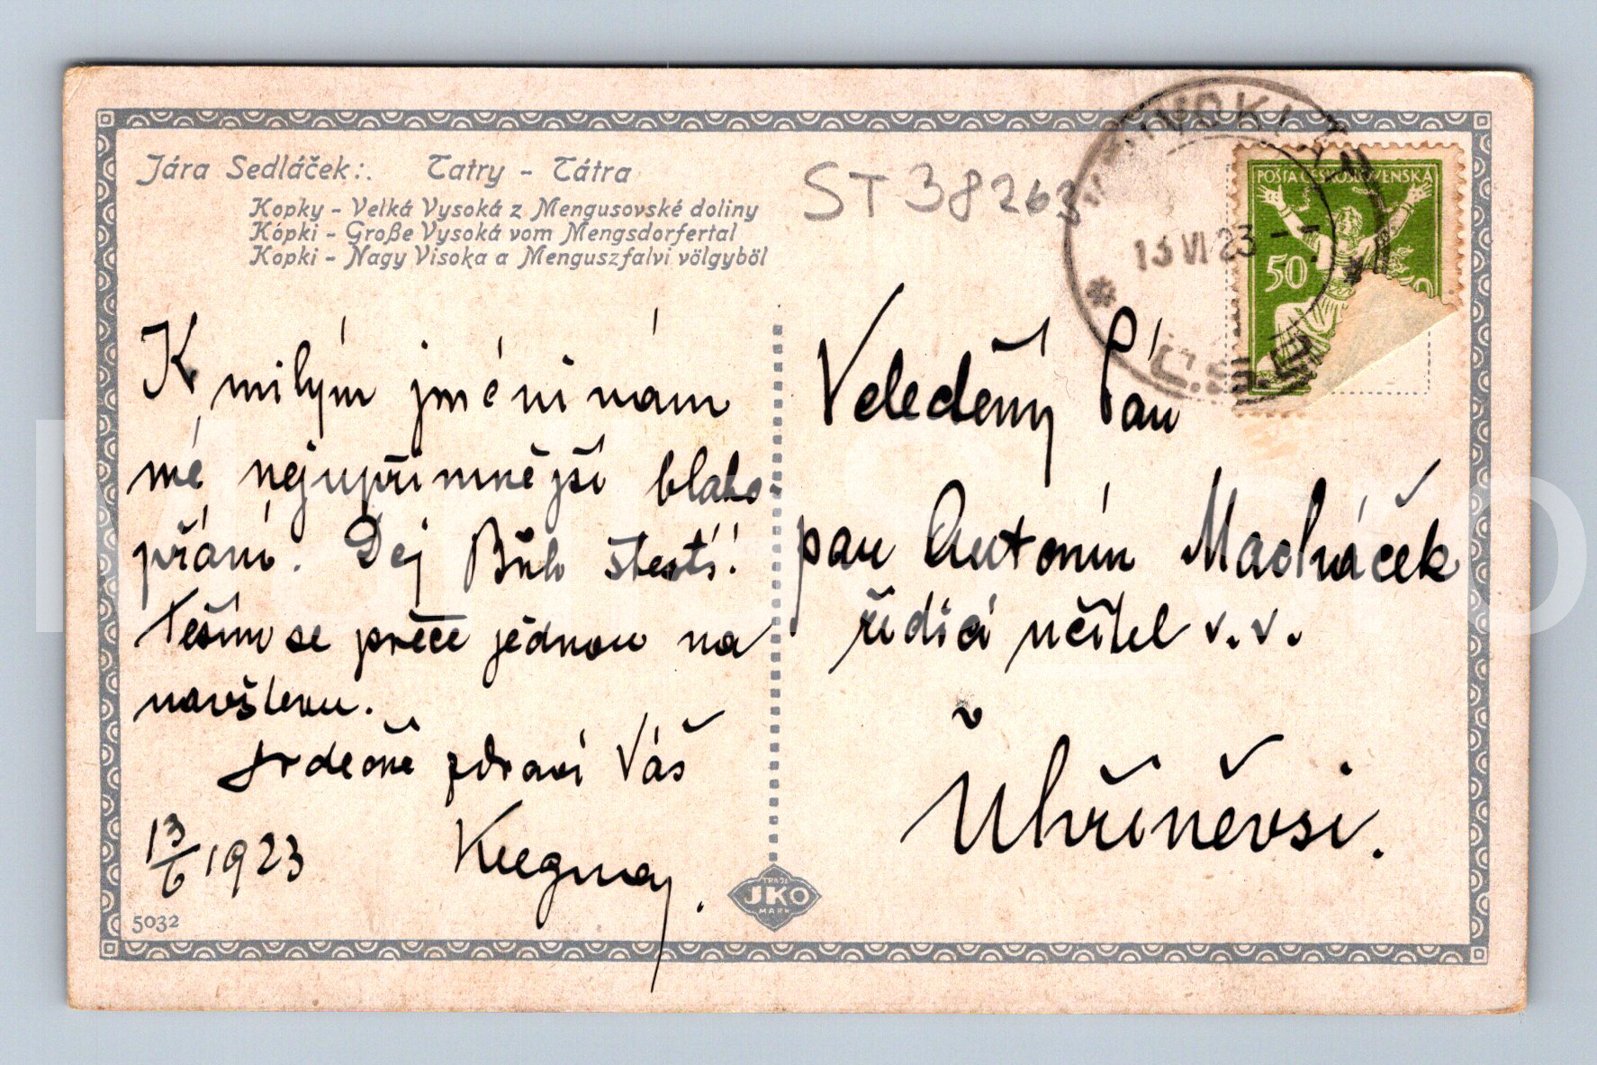 Jára Sedláček:. Tatry - Tátra
Kopky - Velká Vysoká z Mengusovské doliny
Kópki - Große Vysoká vom Mengsdorfertal
Kopki - Nagy Visoka a Menguszfalvi völgyböl
ST 38263
13 VI 23
Č.S.P.
POŠTA ČESKOSLOVENSKÁ
50
K milým jméninám
mé nejupřimnější blaho-
přání. Dej Bůh štestí!
Tešim se přece jednou na
navštevu.
srdečně zdraví Váš
13/6 1923
Veleděný Pán
pan Antonín Macháček
řídicí učitel v. v.
v
Uhřiněvsi.
5032
TRADE
JKO
MARK